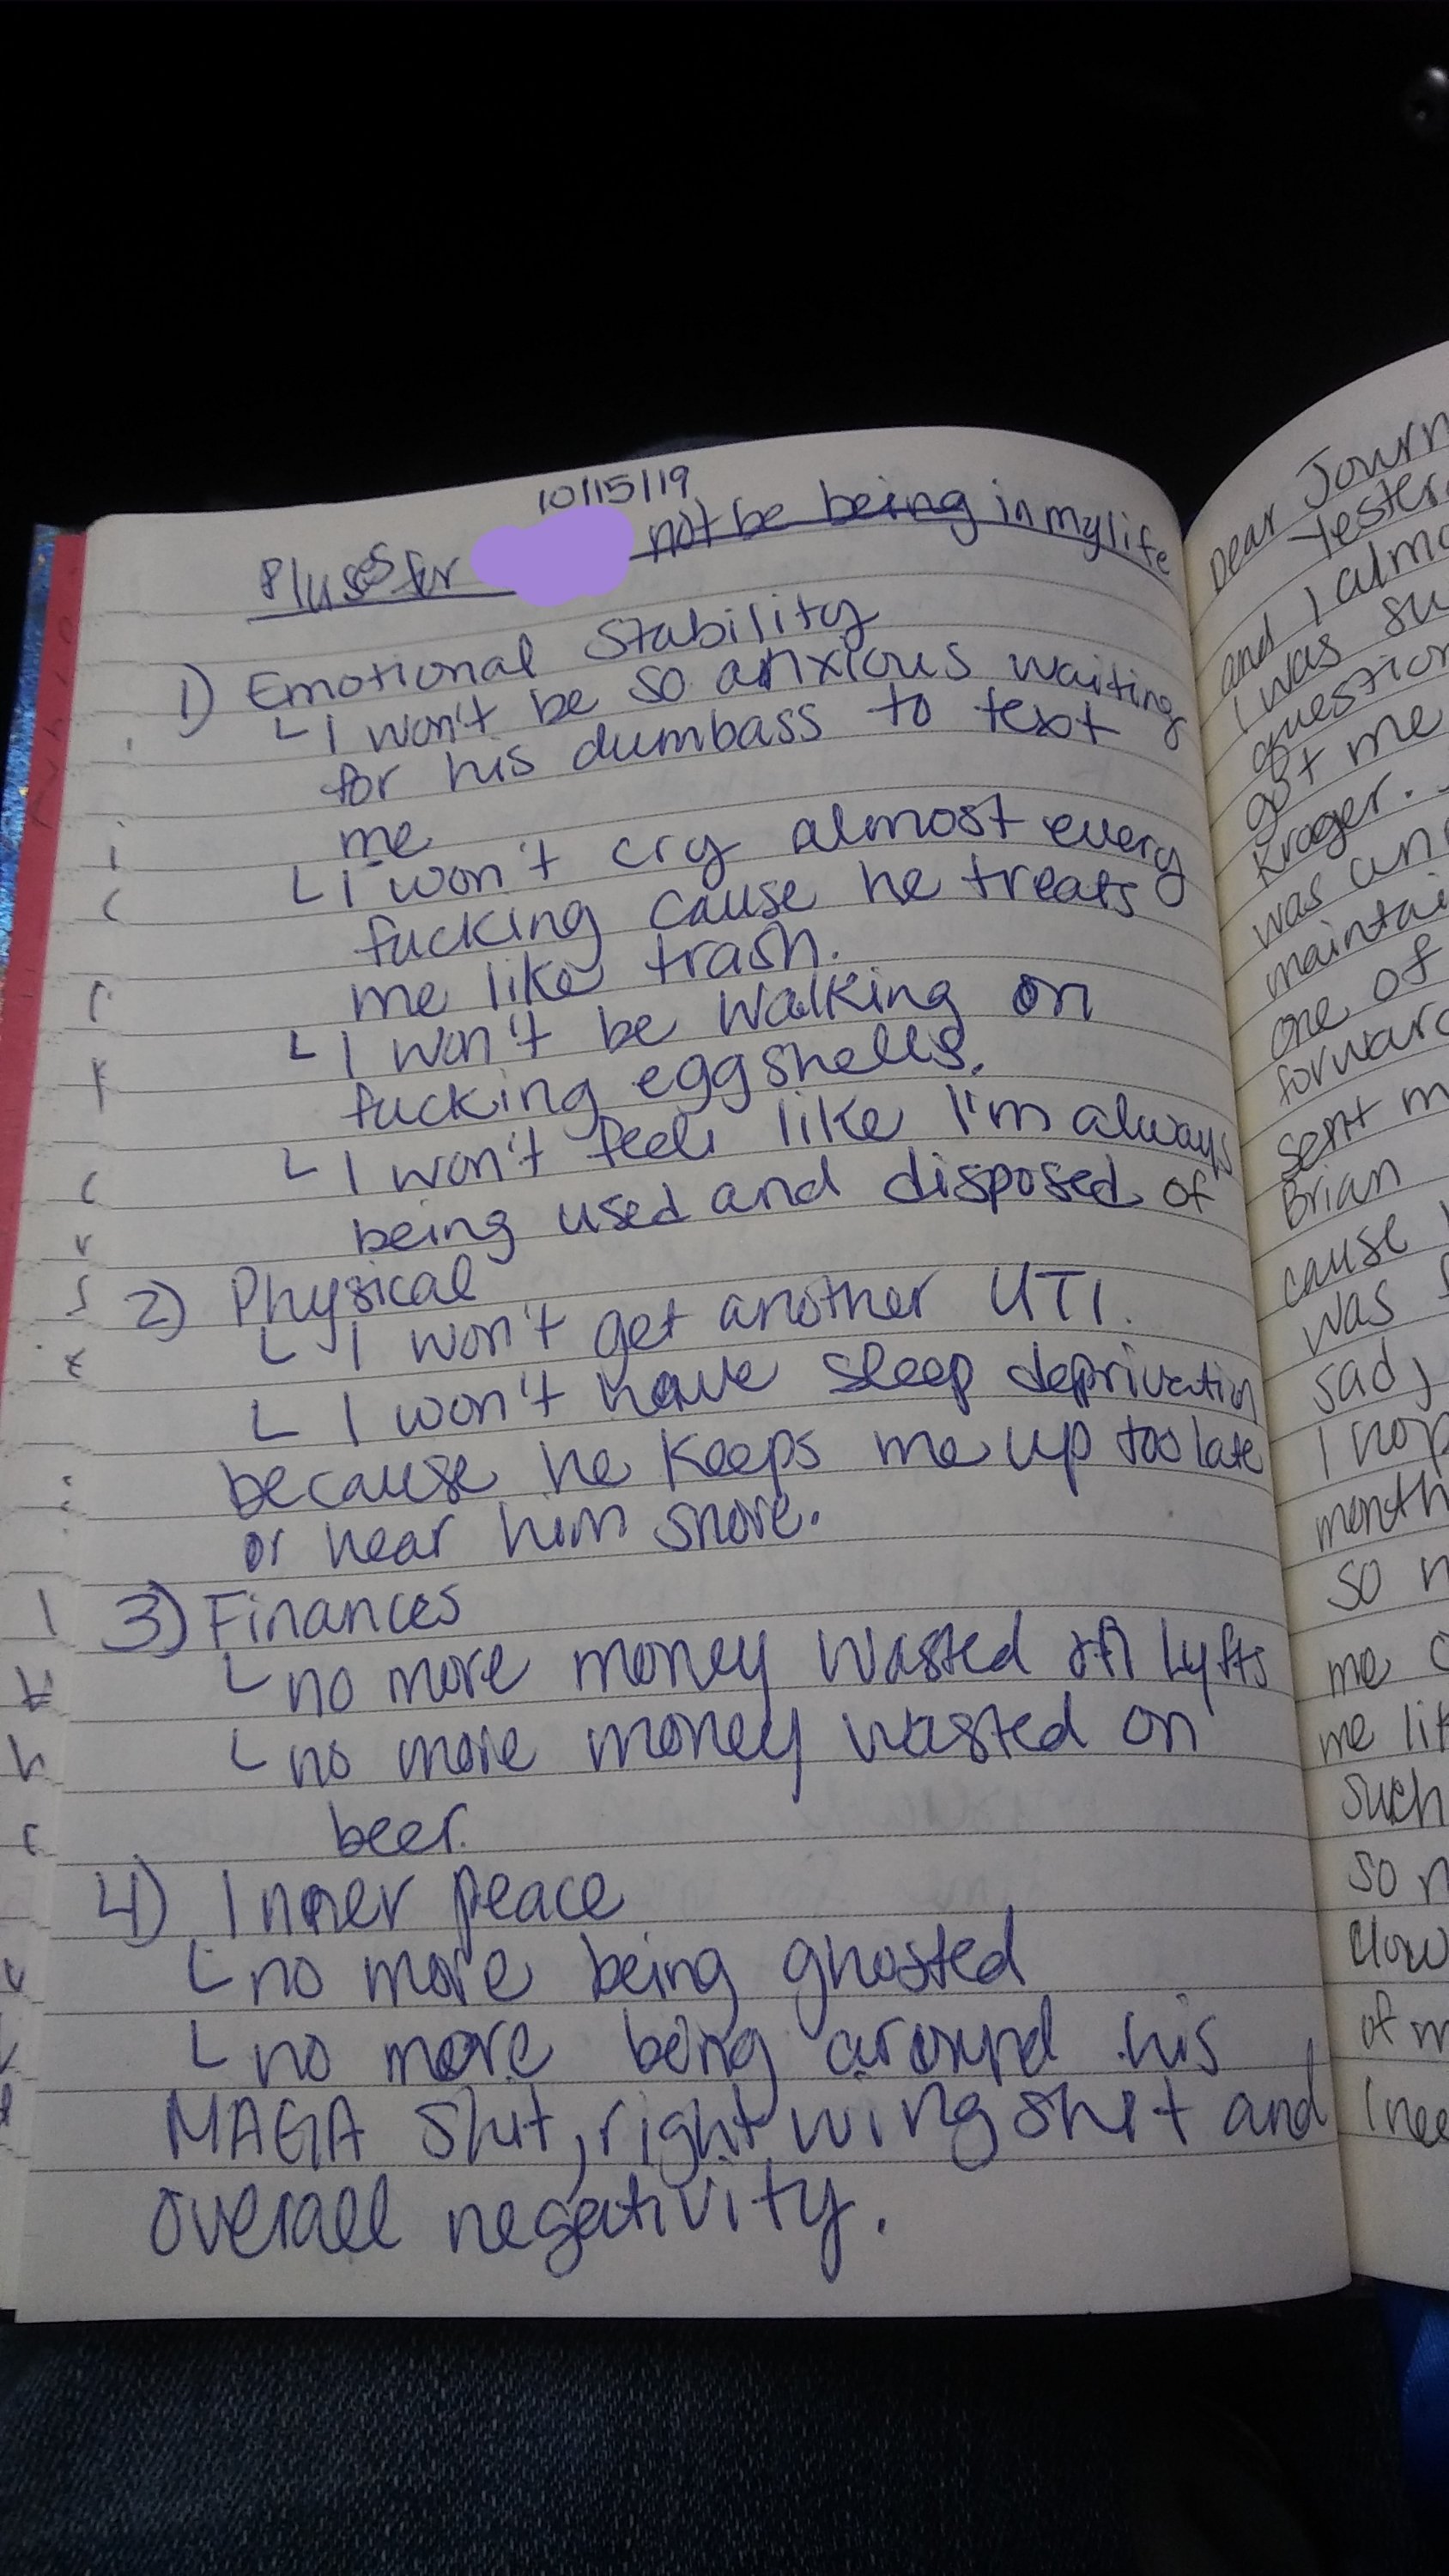 10/15/19
Pluses for not be being in my life
1) Emotional Stability
└ I won't be so anxious waiting
for his dumbass to text
me
└ I won't cry almost every
fucking cause he treats
me like trash.
└ I won't be walking on
fucking eggshells.
└ I won't feel like I'm always
being used and disposed of
2) Physical
└ I won't get another UTI.
└ I won't have sleep deprivation
because he keeps me up too late
or hear him snore.
3) Finances
└ no more money wasted on Lyfts
└ no more money wasted on
beer.
4) Inner peace
└ no more being ghosted
└ no more being around his
MAGA shit, right wing shit and
overall negativity.
Dear Journ
Yester
and I almo
I was su
question
got me
Kroger.
was an
maintai
one of
forward
sent m
Brian
cause
was
sad,
I hop
month
so n
me
me lik
such
so n
of m
I nee